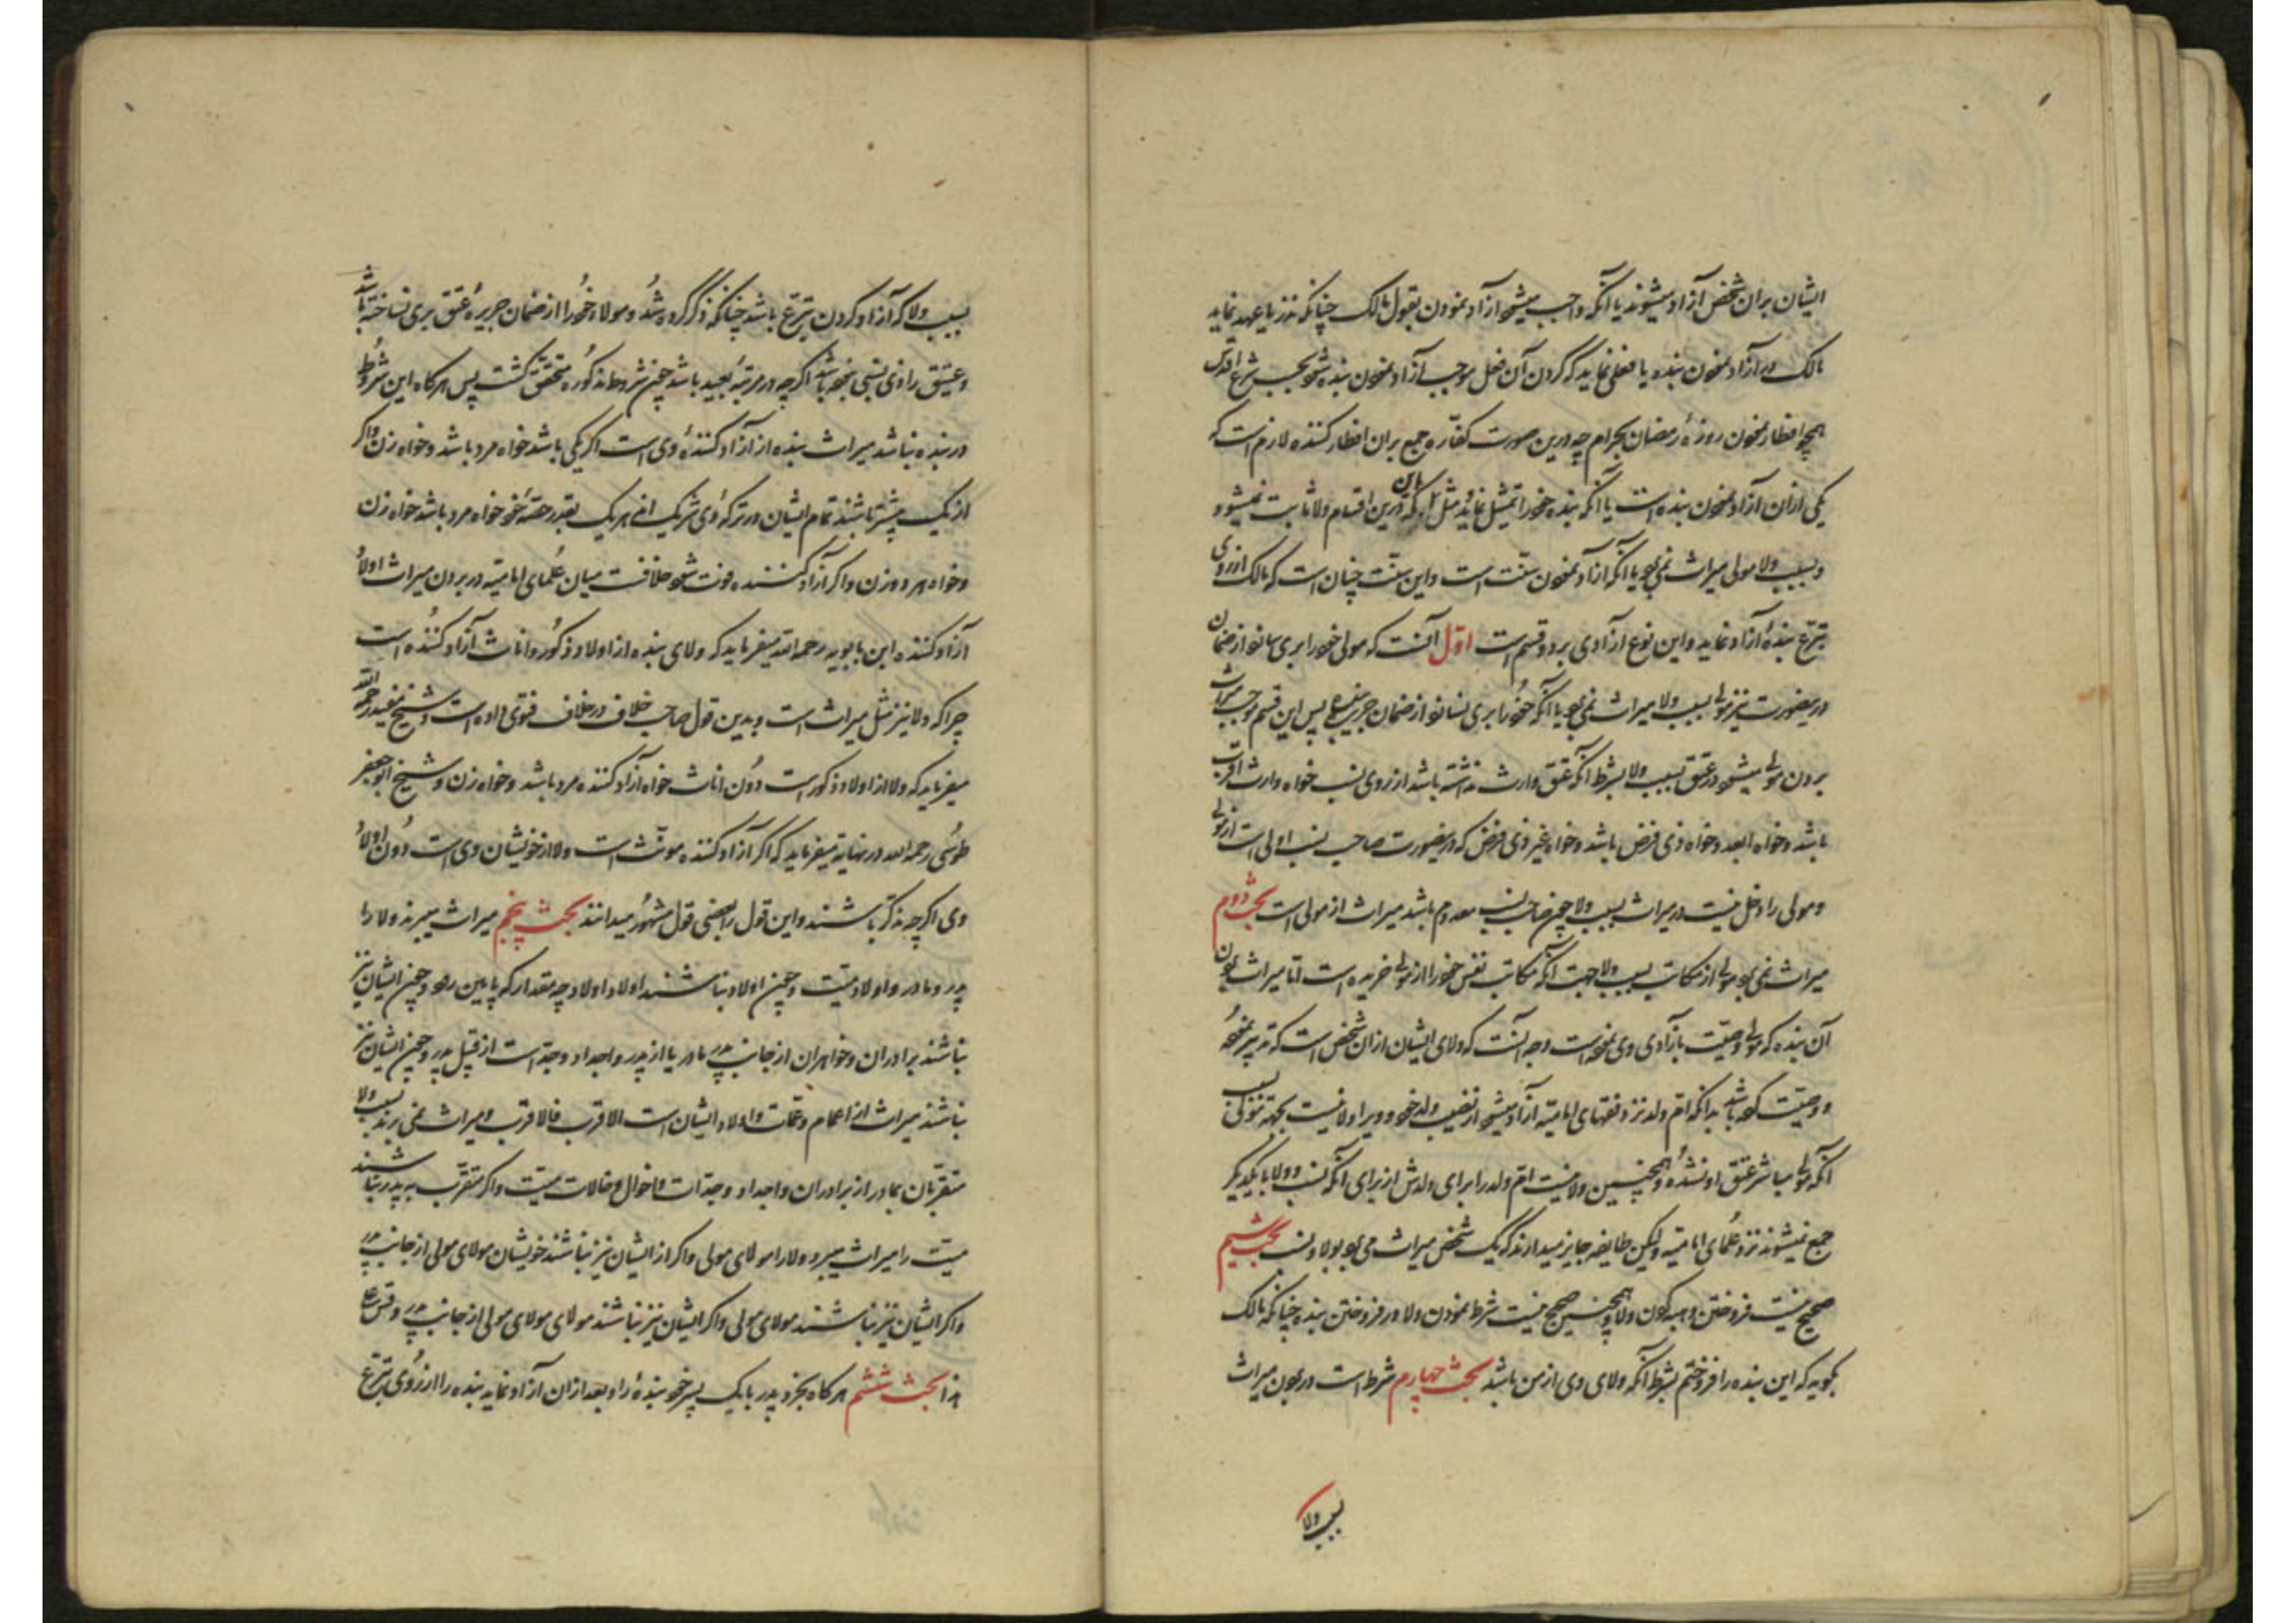 ایشان بران شخص آزاد میشوند یا آنکه واجب میشود آزاد نمودن بقول مالک چنانکه نذر یا عهد نماید
مالک در آزاد نمودن بنده یا فعلی نماید که کردن آن فعل موجب آزاد نمودن بنده شود بحسب شرع اقدس
همچو افطار نمودن روزهٔ رمضان بحرام چه درین صورت کفّاره جمع بران افطار کننده لازم است که
یکی ازان آزاد نمودن بنده است یا آنکه بنده خود را تمثیل نماید که درین اقسام ولا ثابت نمیشود
و بسبب ولا مولی میراث نمی برد یا آنکه آزاد نمودن سنّت است و این سنّت چنان است که مالک از روی
تبرّع بندهٔ آزاد نماید و این نوع آزادی بر دو قسم است اوّل آنست که مولی خود را بری سازد از ضمان
درینصورت نیز مولی بسبب ولا میراث نمی برد یا آنکه خود را بری نسازد از ضمان جریره پس این قسم موجب میراث
بردن مولی میشود در عتق بسبب ولا بشرط آنکه عتیق وارث نداشته باشد از روی نسب خواه وارث اقرب
باشد و خواه ابعد و خواه ذی فرض باشد و خواه غیر ذی فرض که درینصورت صاحب نسب اولی است از مولی
و مولی را دخل نیست در میراث بسبب ولا چون صاحب نسب معدوم باشد میراث از مولی است بحث دوم
میراث نمی برد مولی از مکاتب بسبب ولا جهت آنکه مکاتب نفس خود را از مولی خریده است امّا میراث بردن
آن بنده که مولی وصیّت بآزادی وی نموده است وجه آنست که ولای ایشان ازان شخص است که تدبیر نموده
و وصیّت کرده باشد بدانکه امّ ولد نزد فقهای امامیّه آزاد میشود از نصیب ولد خود و ویرا ولا نیست بجهة
آنکه مولی مباشر عتق او نشده و همچنین ولا نیست امّ ولد را برای ولدش از برای آنکه نسب و ولا با یکدیگر
جمع نمیشوند نزد علمای امامیّه ولیکن طایفه جایز میدارند که یک شخص میراث می برد بولا و نسب بحث سیم
صحیح نیست فروختن و هبه کردن ولا و همچنین صحیح نیست شرط نمودن ولا در فروختن بنده چنانکه مالک
بگوید که این بنده را فروختم بشرط آنکه ولای وی از من باشد بحث چهارم شرط است در بردن میراث
بسبب ولا
بسبب ولا که آزاد کردن بتبرّع باشد چنانکه ذکر کرده شد و مولا خود را از ضمان جریرهٔ عتق بری نساخته باشد
و عتیق را ذی نسبی نبوده باشد اگرچه در مرتبهٔ بعید باشد چون شروط مذکوره متحقّق گشت پس هرکاه این شروط
در بنده نباشد میراث بنده از آزاد کنندهٔ وی است اگر یکی باشد خواه مرد باشد و خواه زن و اگر
از یک بیشتر باشند تمام ایشان در ترکهٔ وی شریک اند هر یک بقدر حصّهٔ خود خواه مرد باشد خواه زن
و خواه مرد و زن و اگر آزاد کننده فوت شود خلافست میان علمای امامیّه در بردن میراث اولاد
آزاد کننده ابن بابویه رحمه الله میفرماید که ولای بنده از اولاد ذکور و اناث آزاد کننده است
چراکه ولا نیز مثل میراث است و بدین قول صاحب خلاف در خلاف فتوی داده است و شیخ مفید رحمه الله
میفرماید که ولا از اولاد ذکور است دون اناث خواه آزاد کننده مرد باشد و خواه زن و شیخ ابو جعفر
طوسی رحمه الله در نهایه میفرماید که اگر آزاد کننده مونّث است ولا از خویشان وی است دون اولاد
وی اگرچه مذکّر باشند و این قول را بعضی قول مشهور میدانند بحث پنجم میراث میبرند ولا را
پدر و مادر و اولاد میّت و چون اولاد نباشند اولاد اولاد چه مقدار که پایین رود و چون ایشان نیز
نباشند برادران و خواهران از جانب پدر و مادر یا از پدر و اجداد و جدّات از قبل پدر و چون ایشان نیز
نباشند میراث از اعمام و عمّات و اولاد ایشان است الاقرب فالاقرب و میراث نمی برند بسبب ولا
متقرّبان بمادر از برادران و اجداد و جدّات و اخوال و خالات میّت و اگر متقرّب به پدر نباشند
میّت را میراث میبرد ولا را مولای مولی و اگر از ایشان نیز نباشند خویشان مولای مولی از جانب پدر
و اگر ایشان نیز نباشند مولای مولی و اگر ایشان نیز نباشند مولای مولای مولی از جانب پدر و قس علی
هذا بحث ششم هرکاه بخرد پدر با یک پسر خود بندهٔ را و بعد ازان آزاد نماید بنده را از روی تبرّع